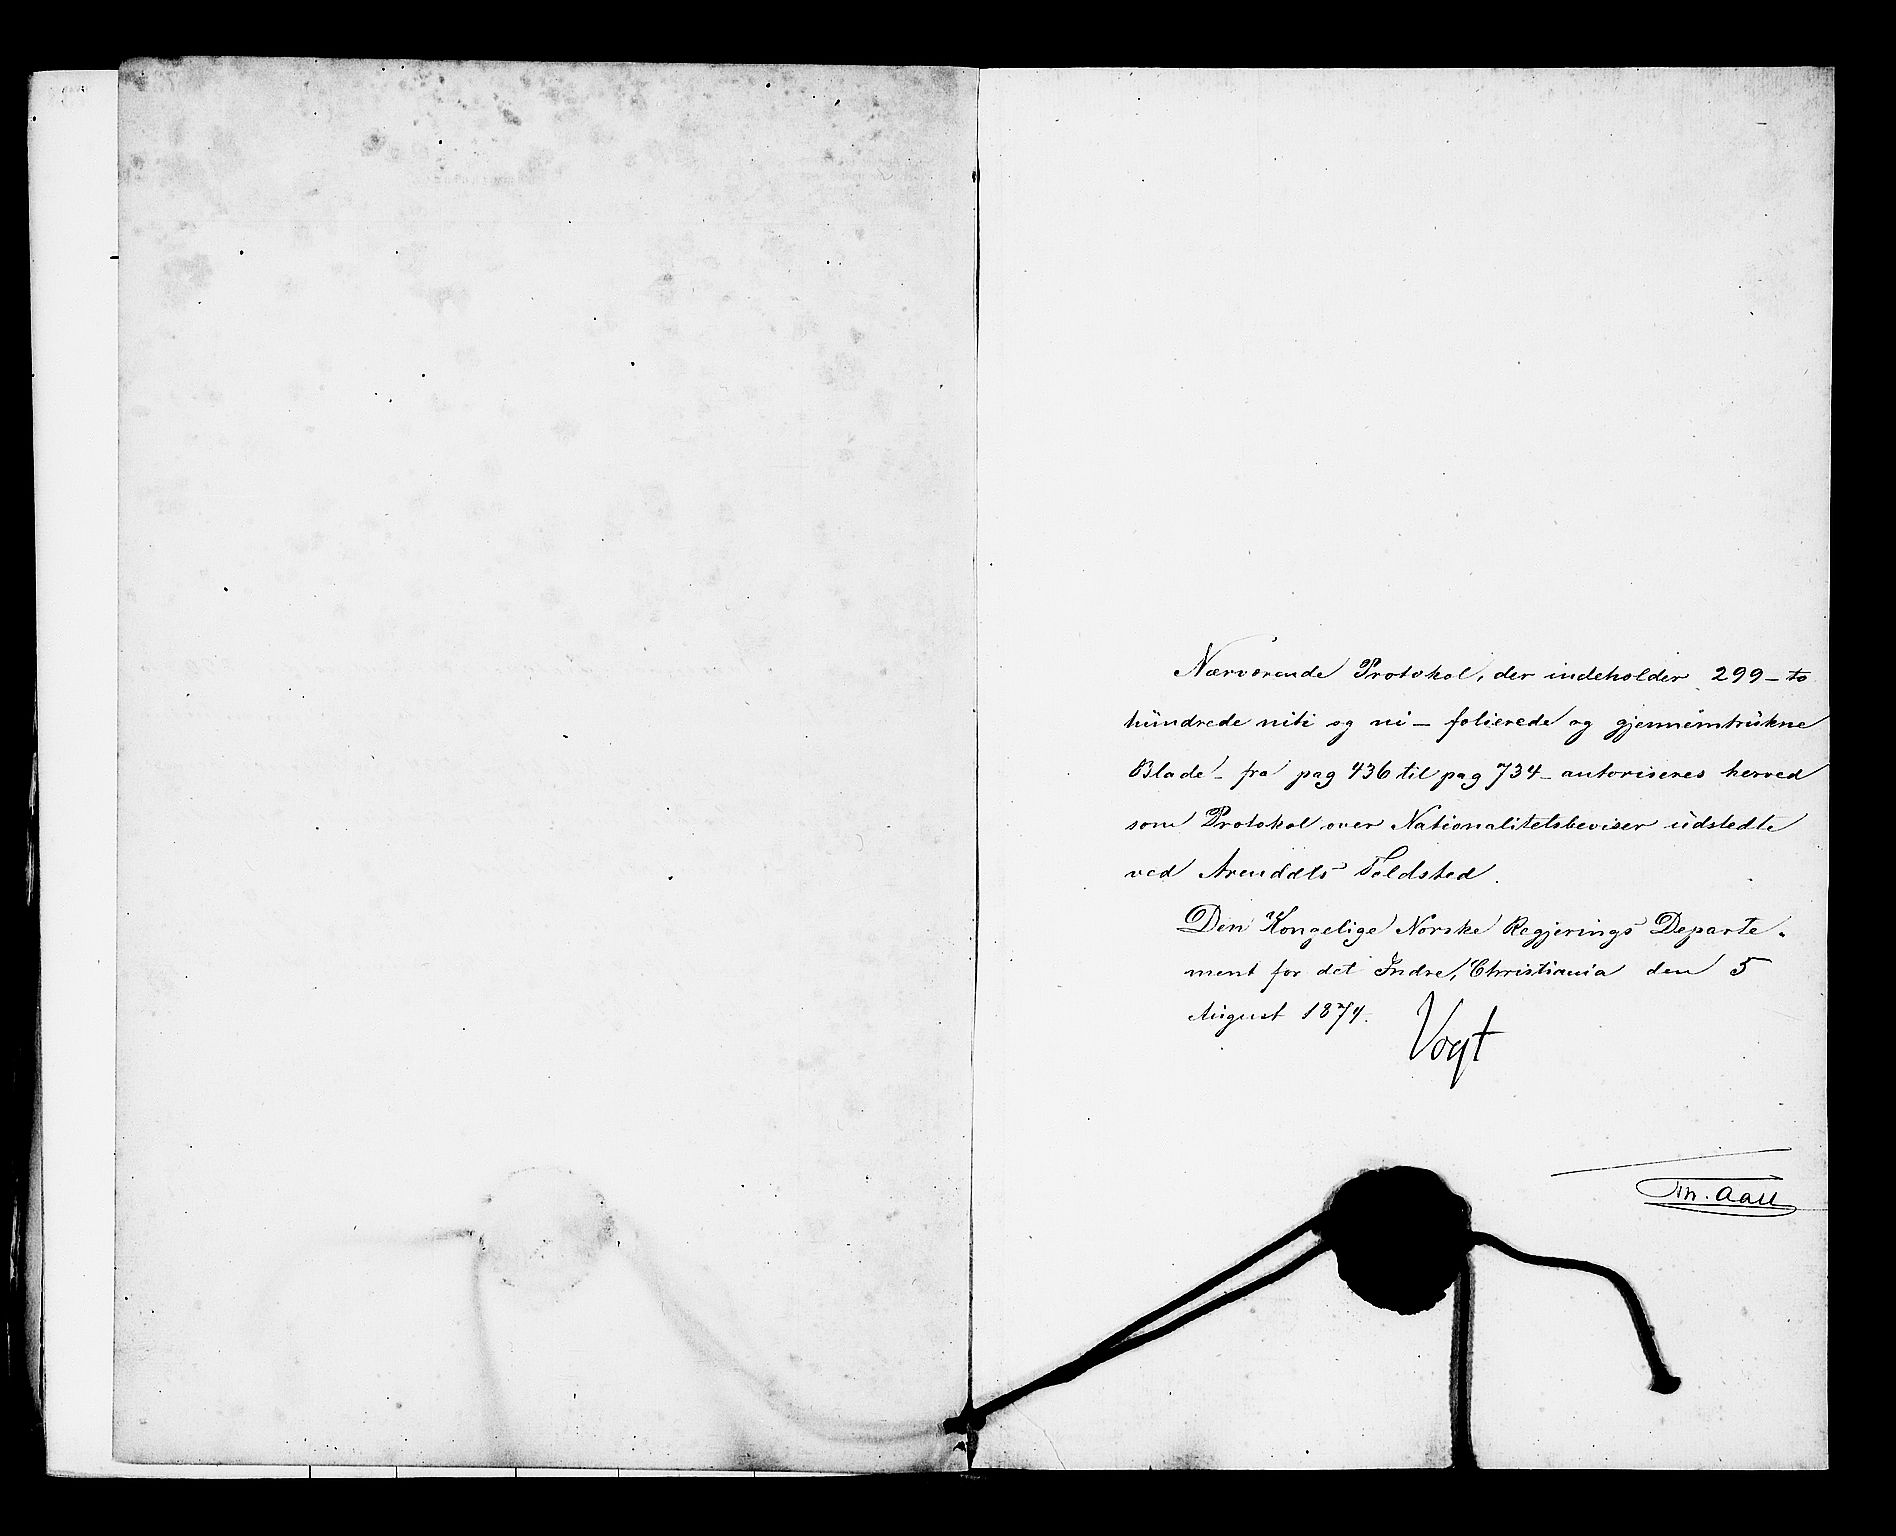 Nærværende Protokol, der indeholder 299 – to
hundrede niti og ni – folierede og gjennemtrukne
Blade – fra pag 436 til pag 734 – autoriseres herved
som Protokol over Nationalitetsbeviser udstedte
ved Arendals Toldsted.
Den Kongelige Norske Regjerings Departe-
ment for det Indre, Christiania den 5
August 1874.
Vogt
Th. Aall